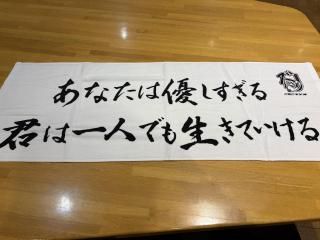 あなたは優しすぎる
君は一人でも生きていける